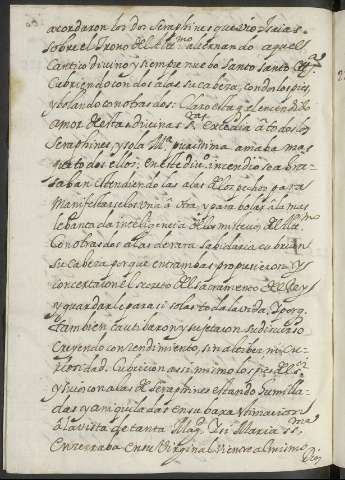 acordaron los dos Seraphines que vio Isaias
sobre el trono del Altmo alternando aquel
Cantico divino y siempre nuebo Santo Santo
Cubriendo con dos alas su cabeza, con dos los pies,
y bolando con otras dos: Claro esta q el encendido
amor destas divinas Sras excedia à todos los
Seraphines, y sola Ma purissima amaba mas
que todos ellos. En este divo incendio se abra-
saban estendiendo las alas de los pechos para
manifestarselos una à otra, y para bolar à la mas
lebantada inteligencia de los misterios del Altmo
Con otras dos alas de rara sabiduria cubrian
su cabeza porque entrambas propusieron y
concertaron el secreto del sacramento del Rey
y guardarle para si solas toda la vida. Y porq
tambien cautibaron y sujetaron su discurso
creyendo con rendimiento, sin altibez ni cu-
riosidad. Cubrieron assi mismo los pies del Sor
y suyos con alas de Seraphines estando humilla-
das y aniquiladas en su baxa estimacion
à la vista de tanta Magd. Y si Maria ssma
encerraba en su Virginal Vientre al mismo
Dios